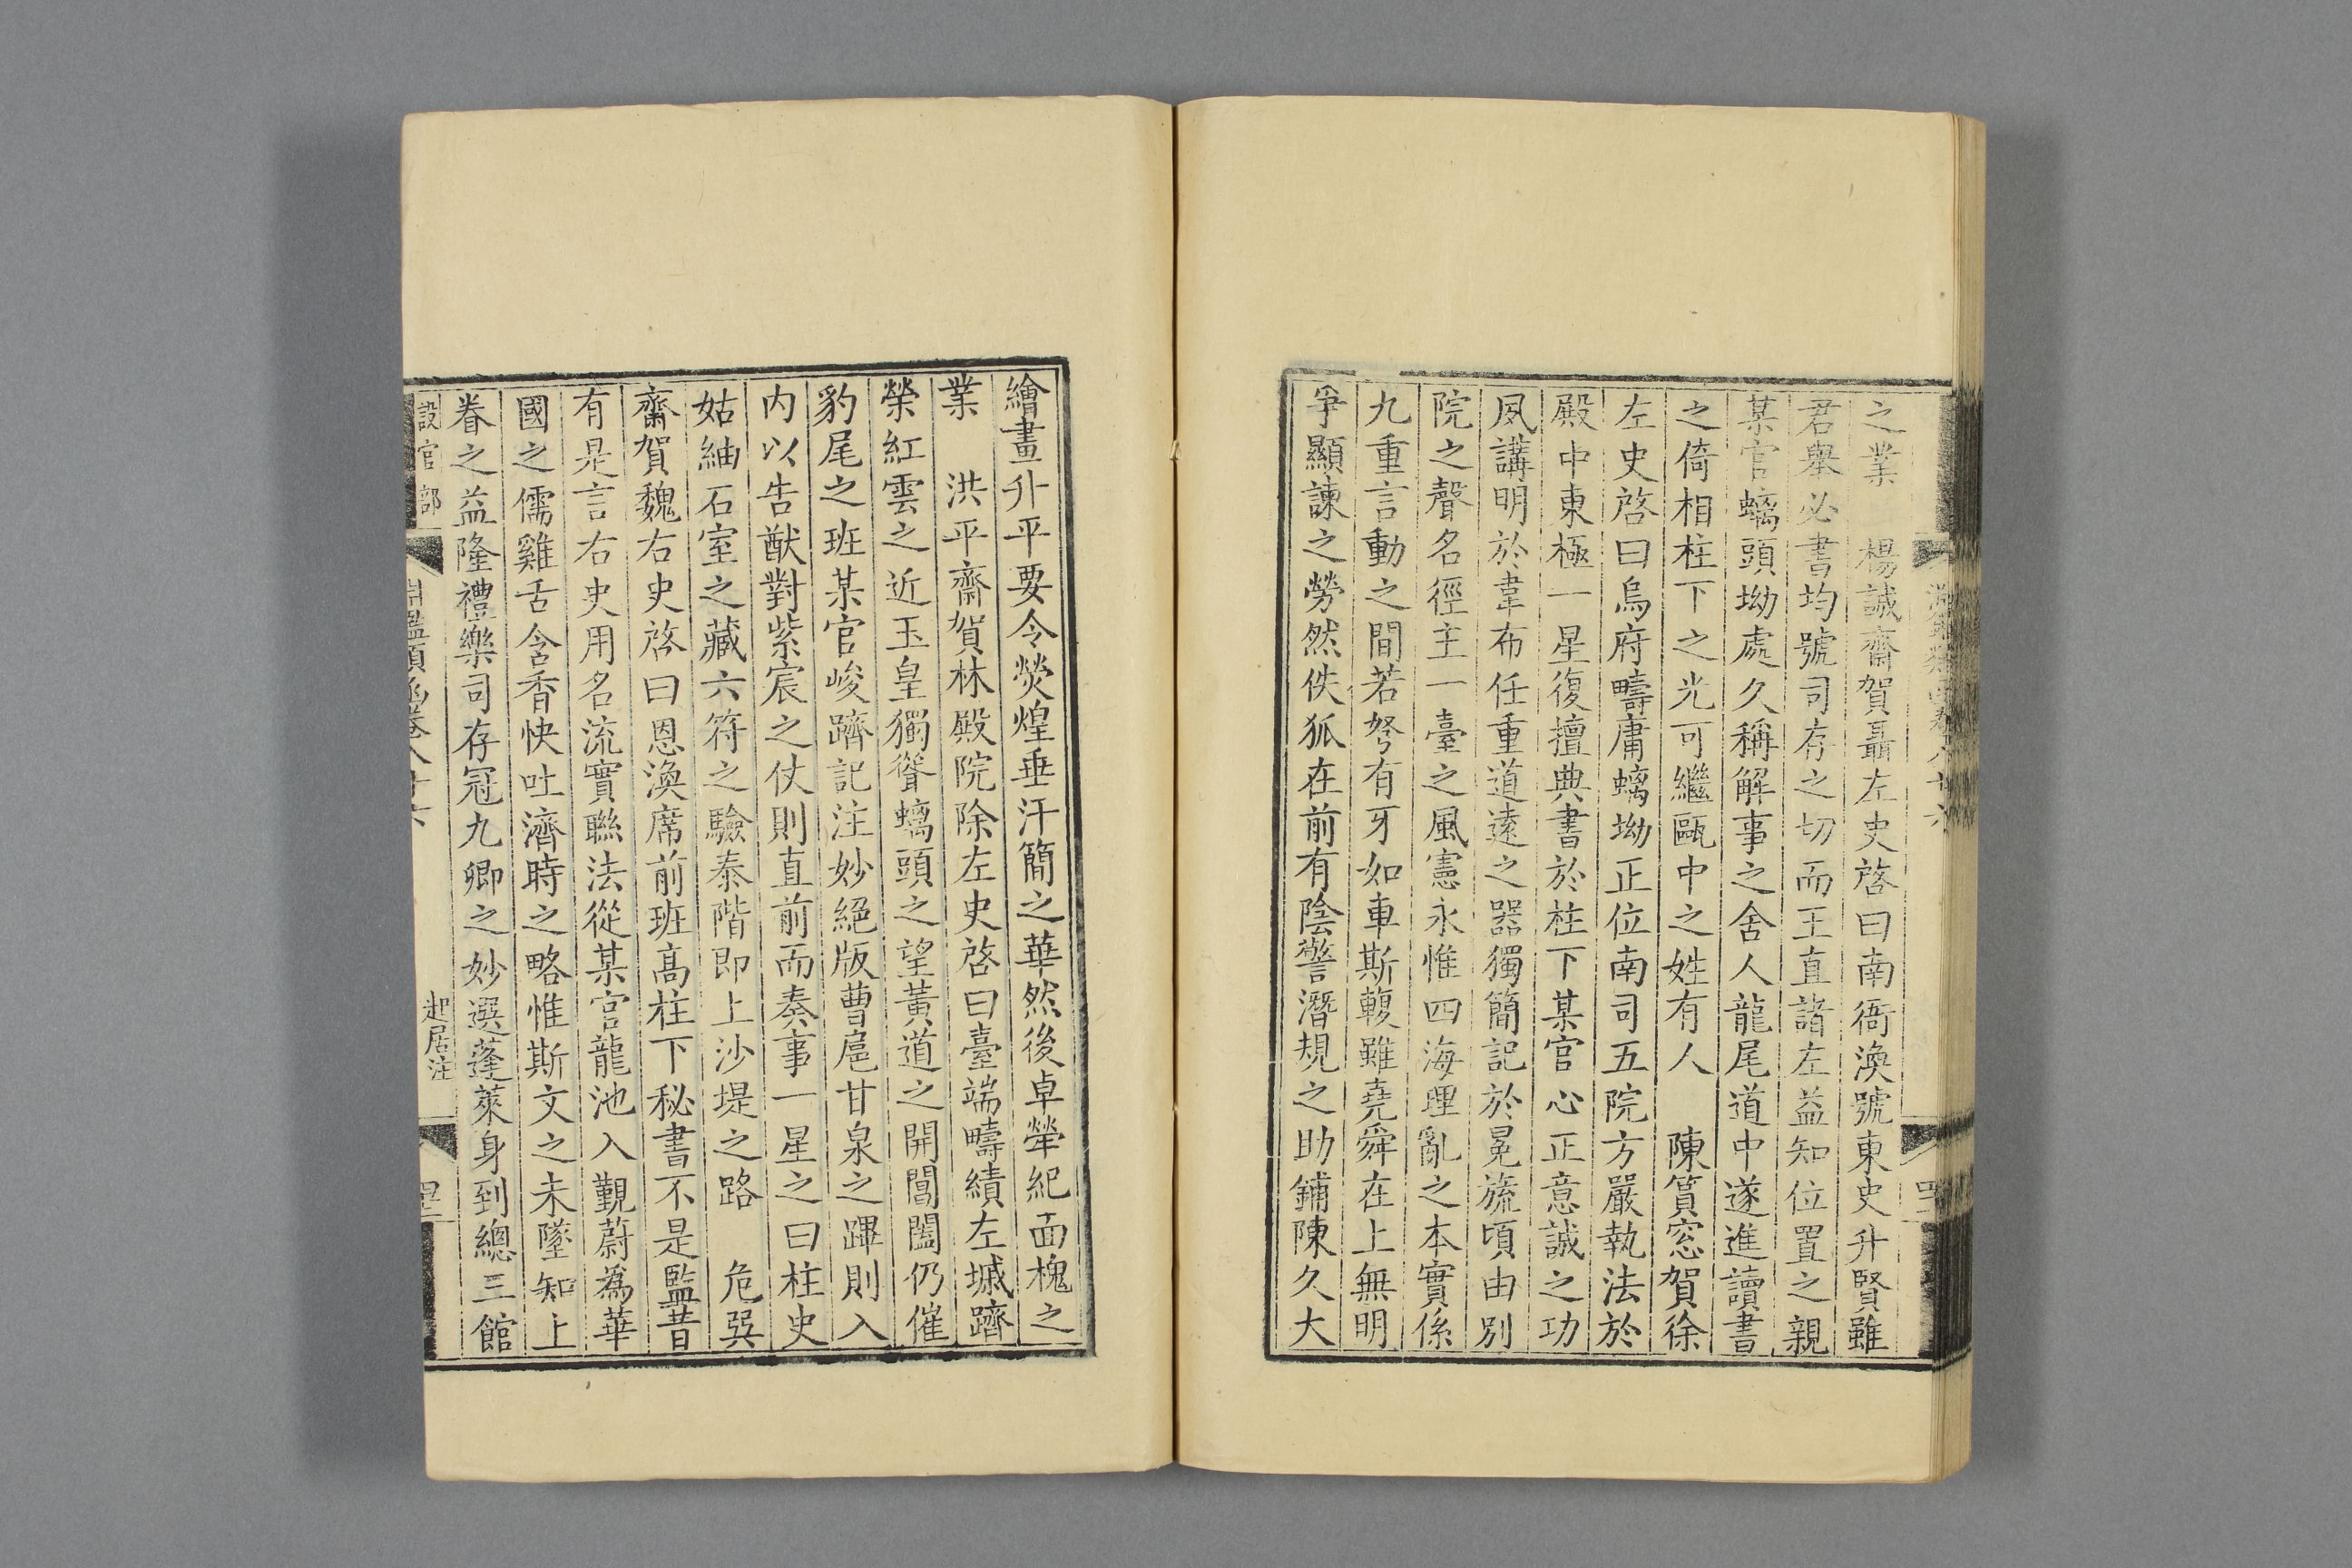 之業　楊誠齋賀聶左史啓曰南衙渙號東史升賢雖
君舉必書均號司存之切而王直諸左益知位置之親
某官螭頭坳處久稱解事之舍人龍尾道中遂進讀書
之倚相柱下之光可繼甌中之姓有人　陳篔窓賀徐
左史啓曰烏府疇庸螭坳正位南司五院方嚴執法於
殿中東極一星復擅典書於柱下某官心正意誠之功
夙講明於韋布任重道遠之器獨簡記於冕旒頃由別
院之聲名徑主一臺之風憲永惟四海理亂之本實係
九重言動之間若弩有牙如車斯輹雖堯舜在上無明
爭顯諫之勞然佚狐在前有陰警潛規之助鋪陳久大
繪畫升平要令熒煌垂汗簡之華然後卓犖紀面槐之
業　洪平齋賀林殿院除左史啓曰臺端疇績左墄躋
榮紅雲之近玉皇獨聳螭頭之望黃道之開閶闔仍催
豹尾之班某官峻躋記注妙絕版曹扈甘泉之蹕則入
內以告猷對紫宸之仗則直前而奏事一星之曰柱史
姑紬石室之藏六符之驗泰階即上沙堤之路　危巽
齋賀魏右史啓曰恩渙席前班高柱下秘書不是監昔
有是言右史用名流實聯法從某官龍池入覲蔚為華
國之儒雞舌含香快吐濟時之略惟斯文之未墜知上
眷之益隆禮樂司存冠九卿之妙選蓬萊身到總三館
設官部　淵鑑類函卷八十六　起居注